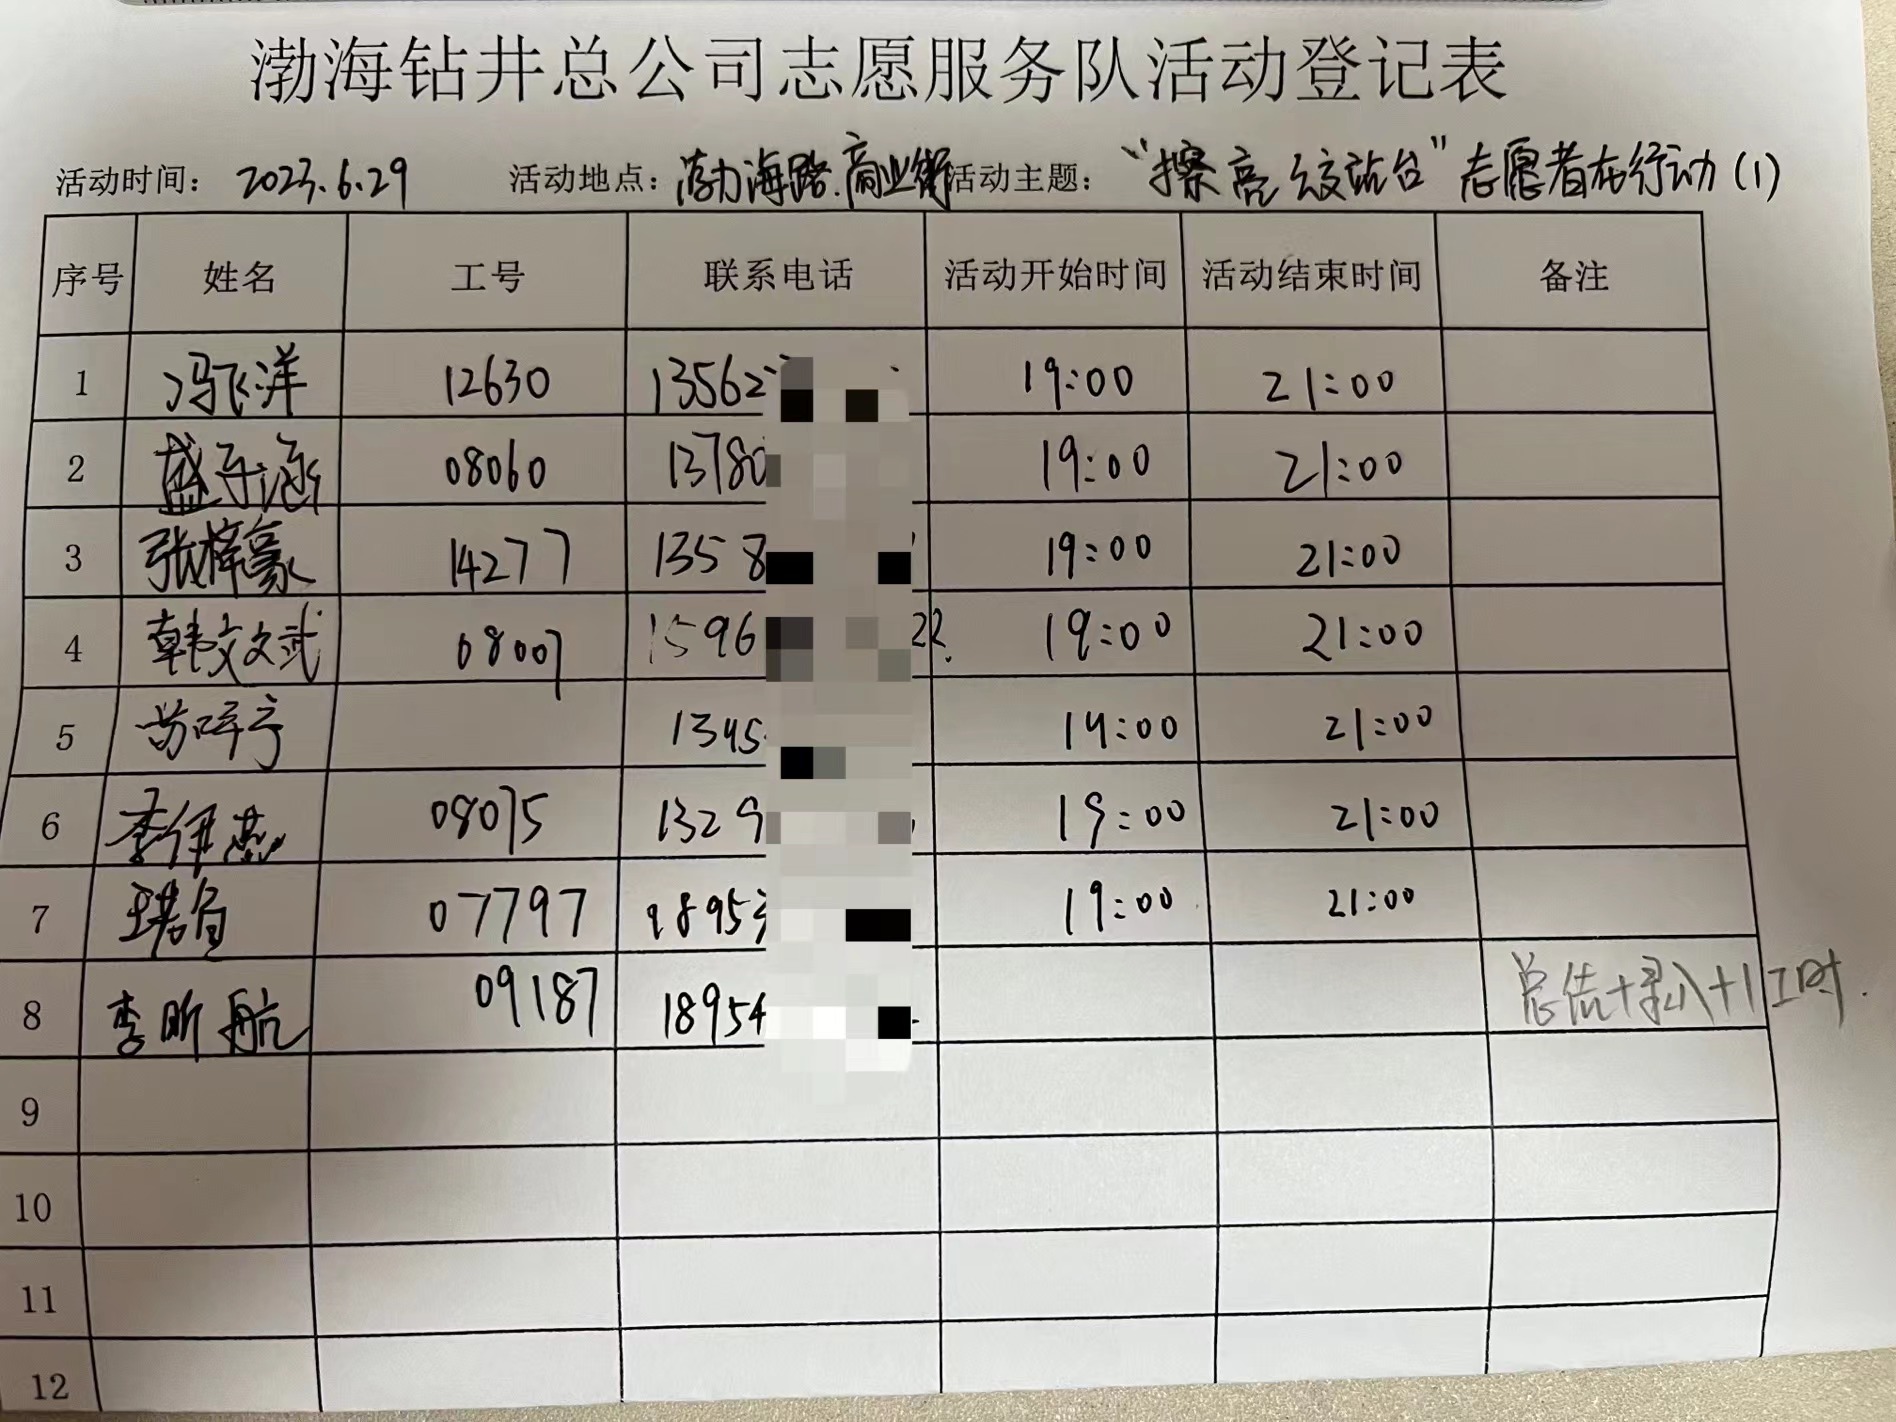 渤海钻井总公司志愿服务队活动登记表
活动时间: 2023.6.29 活动地点: 渤海路.商业街 活动主题: "擦亮公交站台"志愿者在行动(1)
序号 姓名 工号 联系电话 活动开始时间 活动结束时间 备注
1 冯飞洋 12630 13562 19:00 21:00
2 盛子涵 08060 13780 19:00 21:00
3 张梓豪 14277 1358 19:00 21:00
4 韩文武 08007 1596 22 19:00 21:00
5 1345 19:00 21:00
6 李伊燕 08075 1329 19:00 21:00
7 07797 18953 19:00 21:00
8 李昕航 09187 18954 总结+录入+1工时.
9
10
11
12